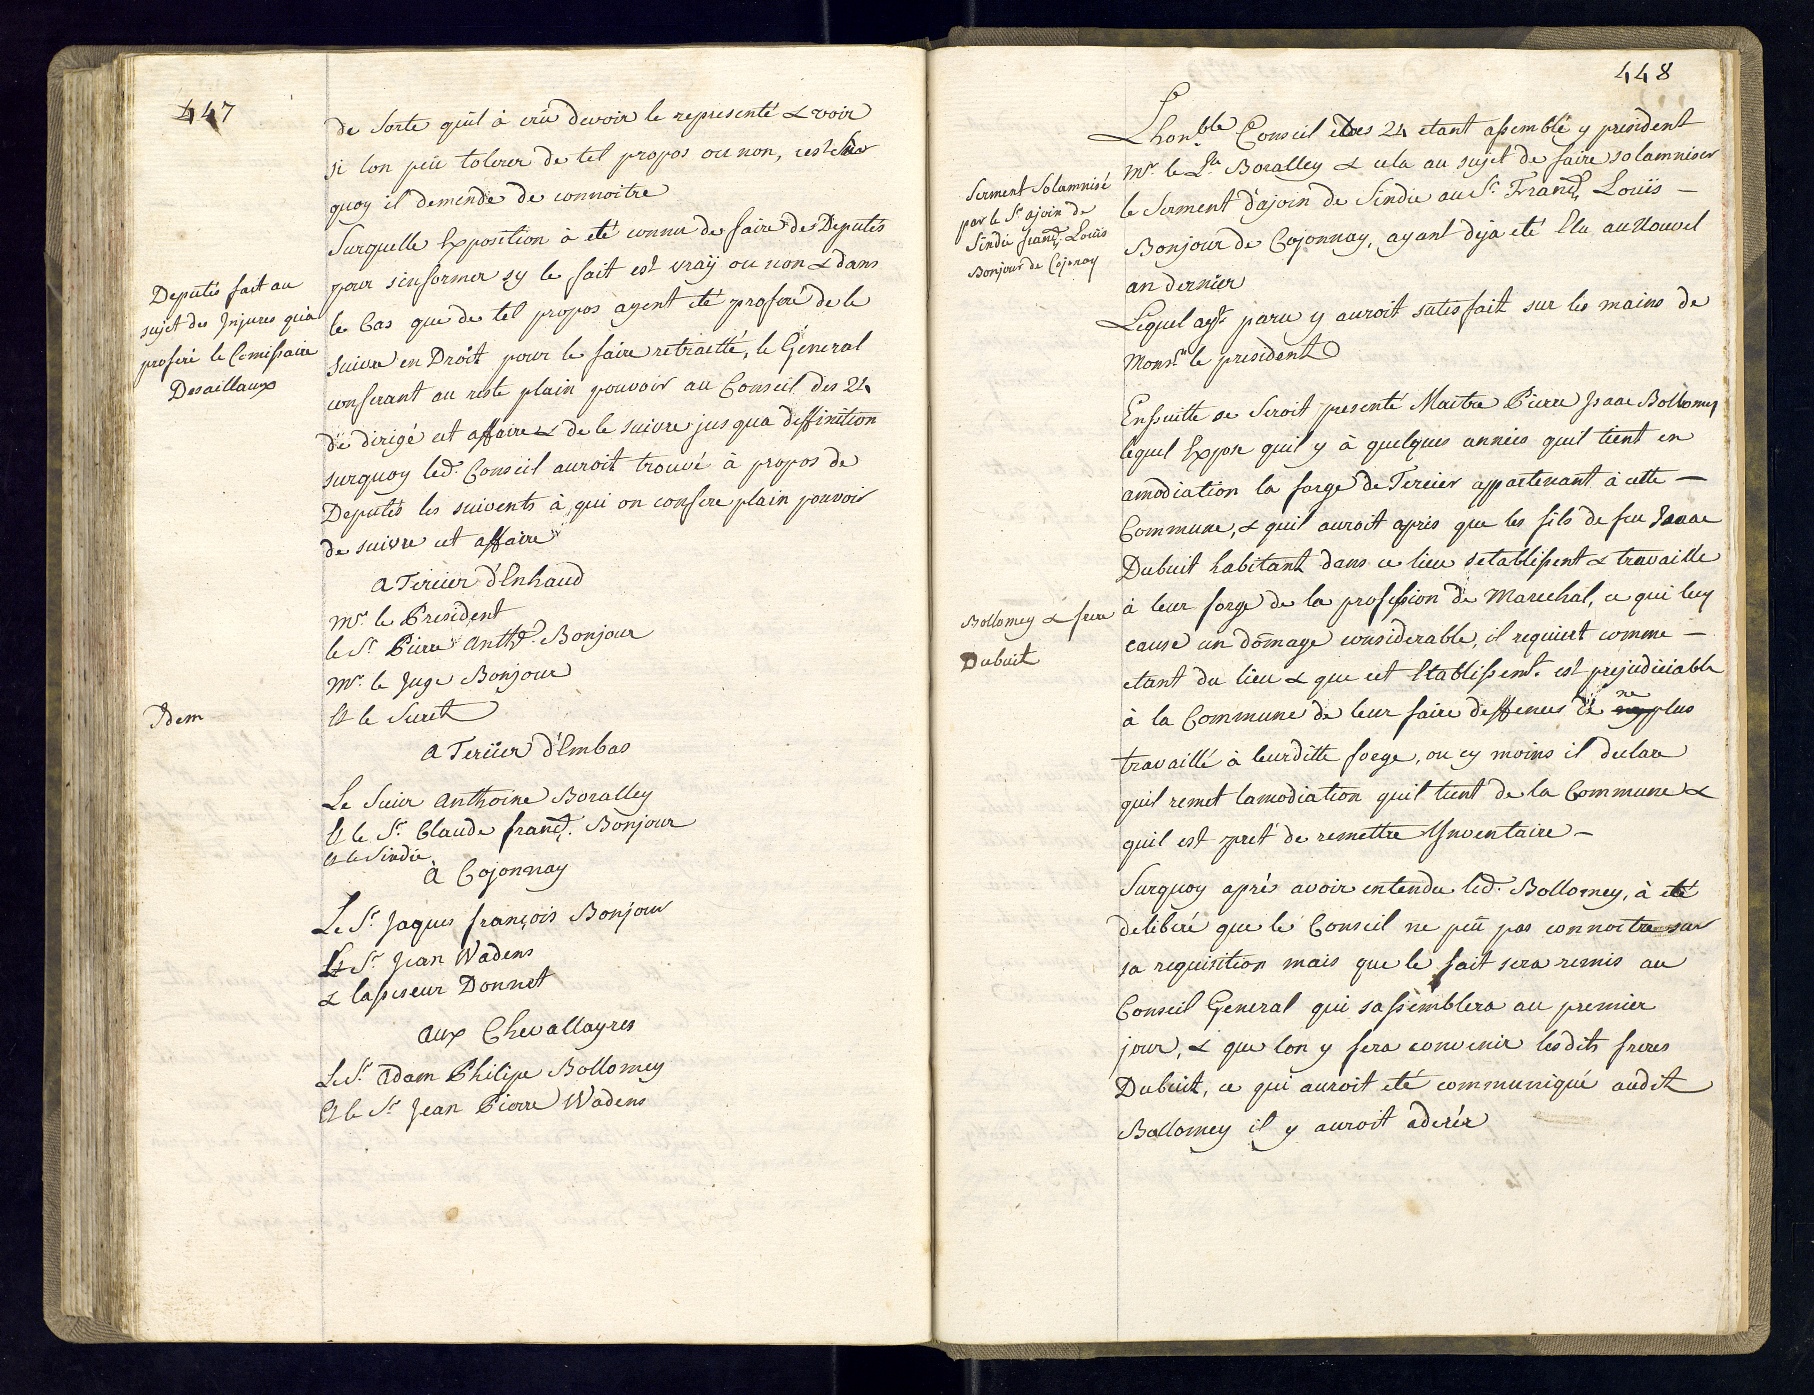 447
de sorte quil à crû devoir le representé & voir
si lon peu tolerer de tel propos ou non, cest sur
quoy il demende de connoitre
Surquelle Exposition à eté connu de faire des Deputés
pour sinformer sy le fait est vraÿ ou non & dans
le Cas que de tel propos ayent eté proferé de le
suivre en Droit pour le faire retraitté, le General
conferant au reste plain pouvoir au Conseil des 24
dé dirigé cet affaire & de le suivre jusqua diffinition
surquoy led. Conseil auroit trouvé à propos de
Deputés les suivents à qui on confere plain pouvoir
de suivre cet affaire
Deputés fait au
sujet des Injures qu'a
proferé le Comissaire
Desaillaux
a Tercier d'Enhaud
Mr. le President
le Sr. Pierre Anthe. Bonjour
Mr. le Juge Bonjour
Et le Suret
Idem
a Tercier d'Embas
Le Sieur Anthoine Boralley
Et le Sr. Claude franç. Bonjour
et le Sindic
à Cojonnay
Le Sr. Jaques françois Bonjour
Le Sr. Jean Wadens
& lassiseur Donnet
aux Chevallayres
Le Sr. Adam Philipe Bollomey
Et le Sr. Jean Pierre Wadens
448
Lhonble. Conseil des 24 etant assemblé y president
Mr. le Lt. Boralley & cela au sujet de faire solamniser
le Serment d'ajoin de Sindic au Sr. Franç. Louïs —
Bonjour de Cojonnay, ayant deja eté Elu au Nouvel
an dernier
Lequel ayt. paru y auroit satisfait sur les mains de
Monsr. le president
Serment Solamnisé
par le Sr ajoin de
Sindic franç. Louis
Bonjour de Cojonay
Ensuitte se seroit presenté Maitre Pierre Isaac Bollomey
lequel Expose quil y à quelques années quil tient en
amodiation la forge de Tercier appartenant à cette —
Commune, & quil auroit apris que les fils de feu Isaac
Dubuit habitant dans ce lieu setablissent & travaille
à leur forge de la profession de Marechal, ce qui luy
cause un domage considerable, il requiert comme —
etant du lieu & que cet Etablissemt. est prejudiciable
à la Commune de leur faire deffences de ne plus
travaillé à leurditte forge, ou cy moins il declare
quil remet lamodiation quil tient de la Commune &
quil est pret de remettre Ynventaire —
Bollomey & frere
Dubuit
Surquoy apré avoir entendu led. Bollomey, à eté
deliberé que le Conseil ne peu pas connoitre sur
sa requisition mais que le fait sera remis au
Conseil General qui sassemblera au premier
jour, & que lon y fera convenir lesdits freres
Dubuit, ce qui auroit eté communiqué audit
Bollomey il y auroit aderér